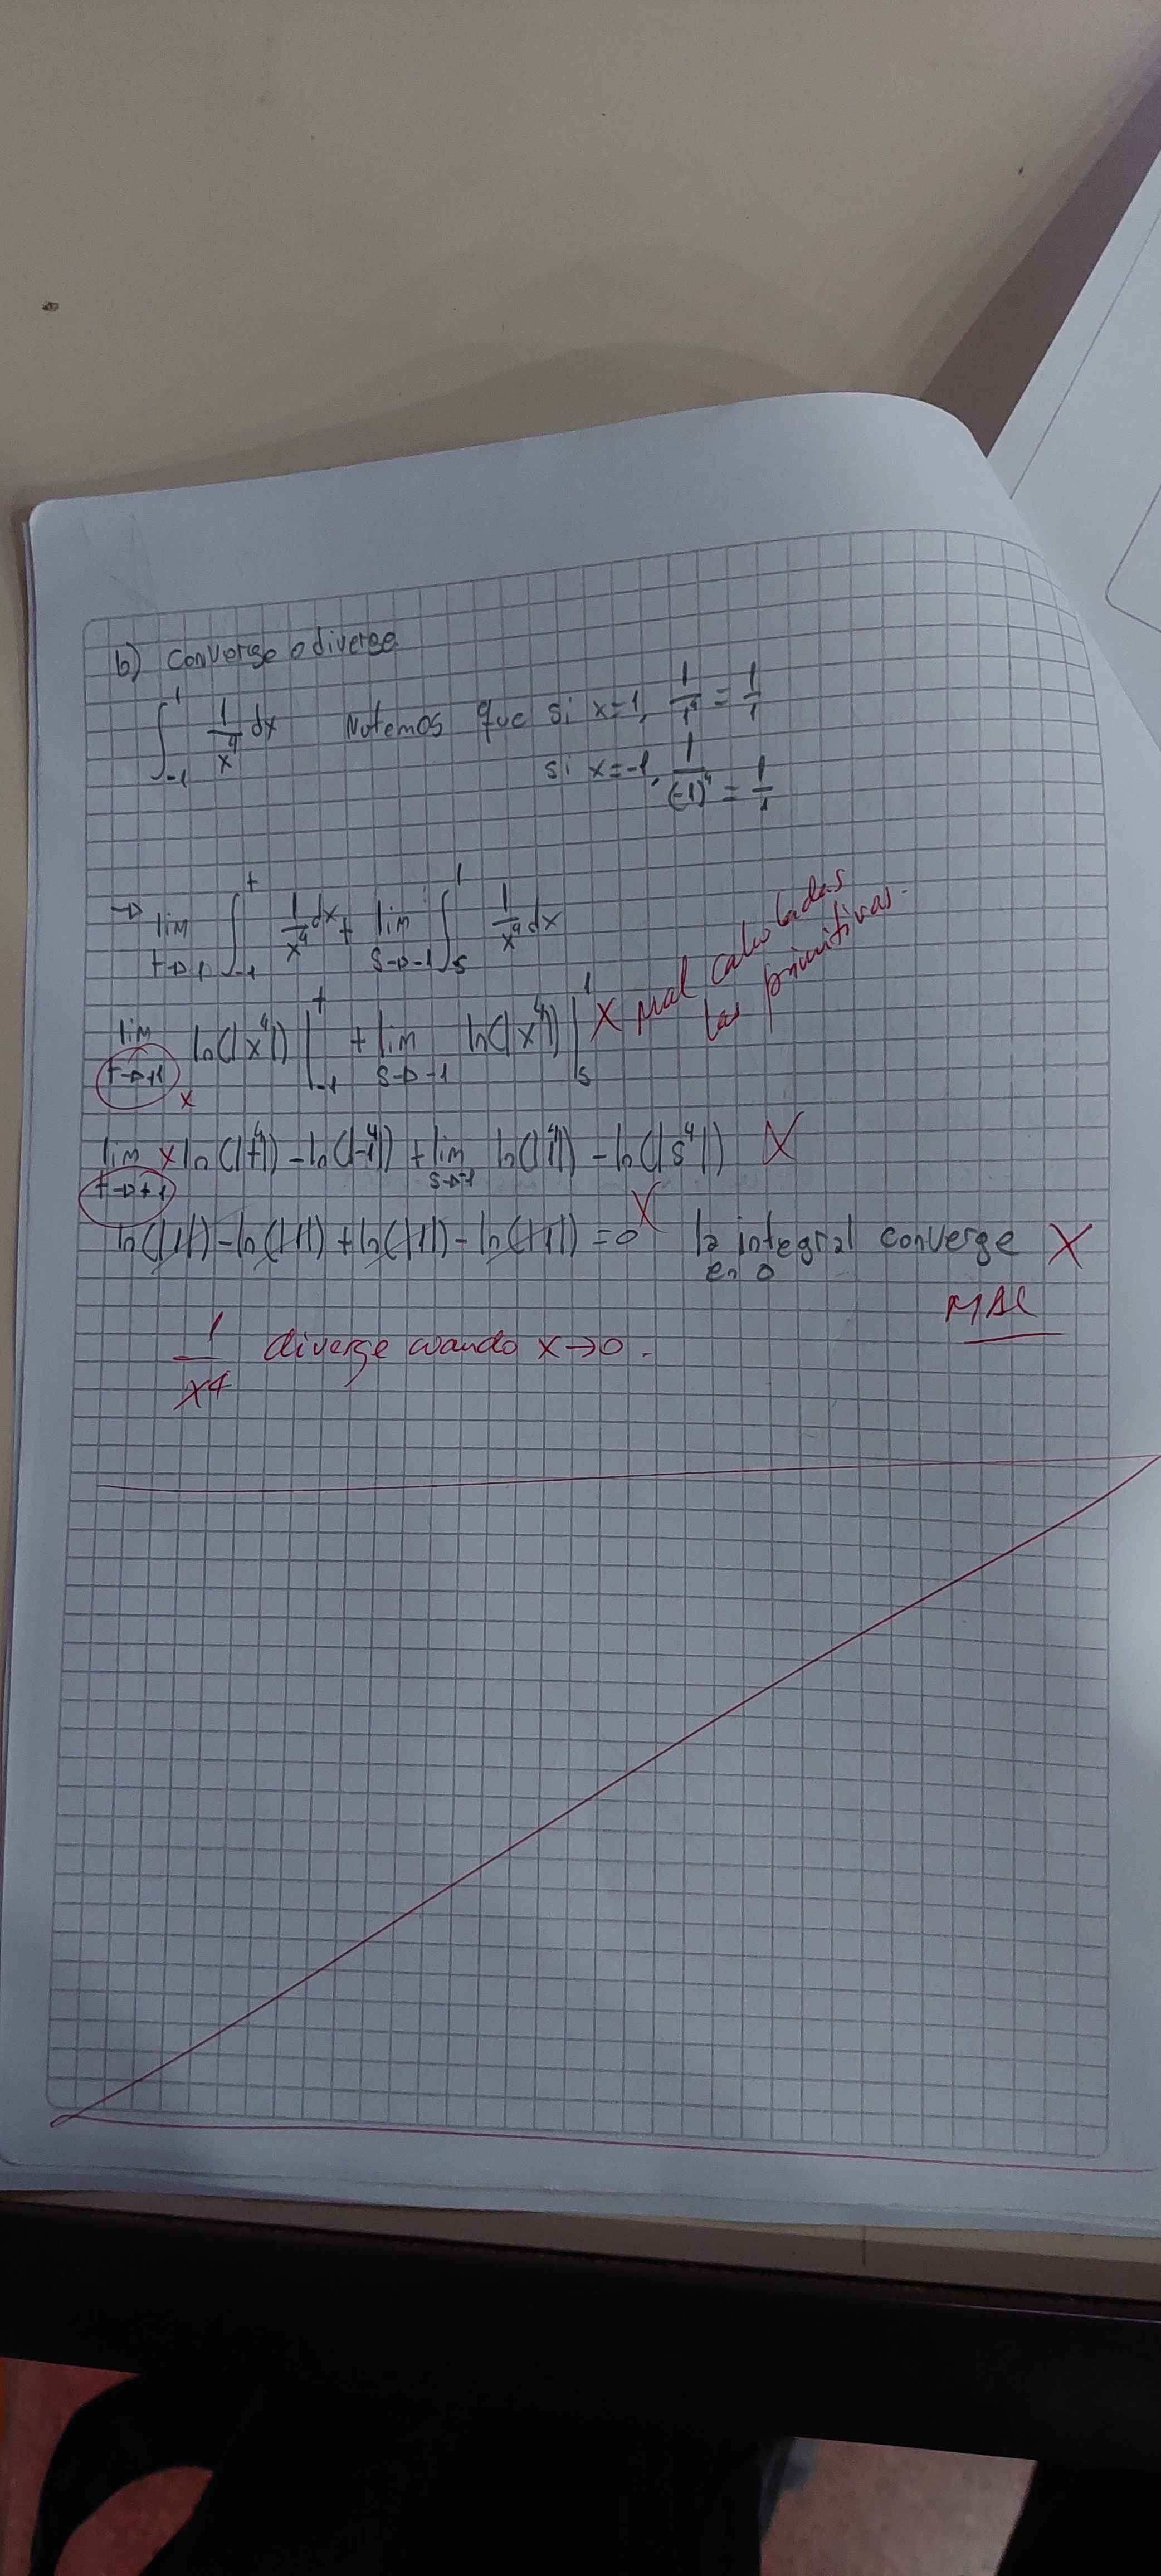 b) Converge o diverge
∫_{-1}^{1} 1/x⁴ dx Notemos que si x=1, 1/1⁴ = 1/1
si x=-1, 1/(-1)⁴ = 1/1
→ lim_{t→1} ∫_{-1}^{t} 1/x⁴ dx + lim_{s→-1} ∫_{s}^{1} 1/x⁴ dx
lim_{t→+1} ln(|x⁴|) |_{-1}^{t} + lim_{s→-1} ln(|x⁴|) |_{s}^{1} X Mal calculadas
las primitivas.
x
lim_{t→+1} x ln(|t⁴|) - ln(|-1⁴|) + lim_{s→-1} ln(|1⁴|) - ln(|s⁴|) X
ln(|1|) - ln(|1|) + ln(|1|) - ln(|1|) = 0 X la integral converge X
en 0
MAL
1/x⁴ diverge cuando x→0.